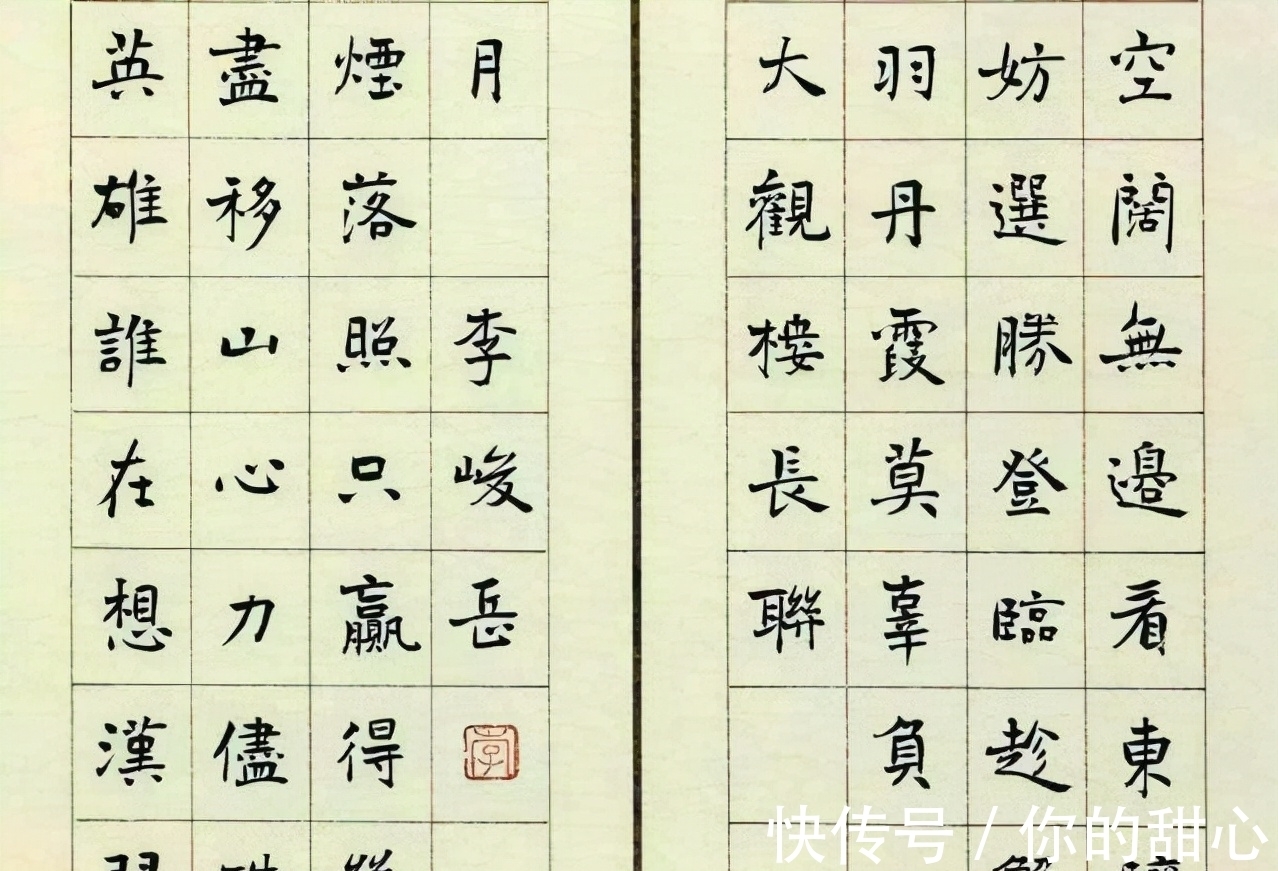 空闊無邊看東
妨選勝登臨趁
羽丹霞莫辜負
大觀樓長聯
英雄誰在想漢
盡移山心力儘
煙落照只贏得
月 李峻岳
快传号 / 你的甜心